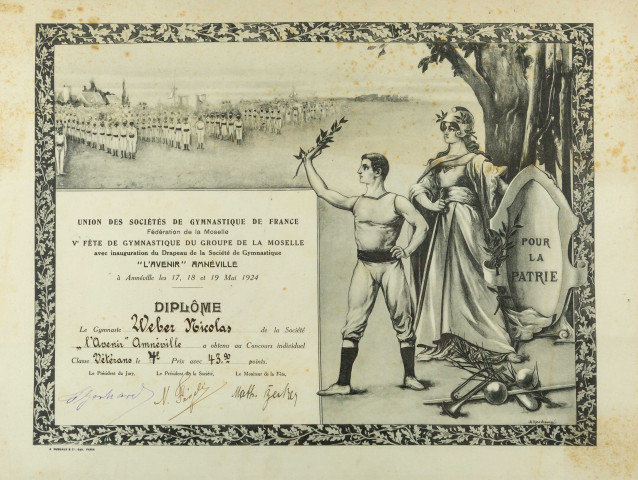 UNION DES SOCIÉTÉS DE GYMNASTIQUE DE FRANCE
Fédération de la Moselle
Vᵉ FÊTE DE GYMNASTIQUE DU GROUPE DE LA MOSELLE
avec inauguration du Drapeau de la Société de Gymnastique
"L'AVENIR" AMNÉVILLE
à Amnéville les 17, 18 et 19 Mai 1924
DIPLÔME
Le Gymnaste Weber Nicolas de la Société
"l'Avenir" Amnéville a obtenu au Concours individuel
Classe Vétérans le Prix avec points.
Le Président du Jury, Le Président de la Société, Le Moniteur de la Fête,
Math.
POUR
LA
PATRIE